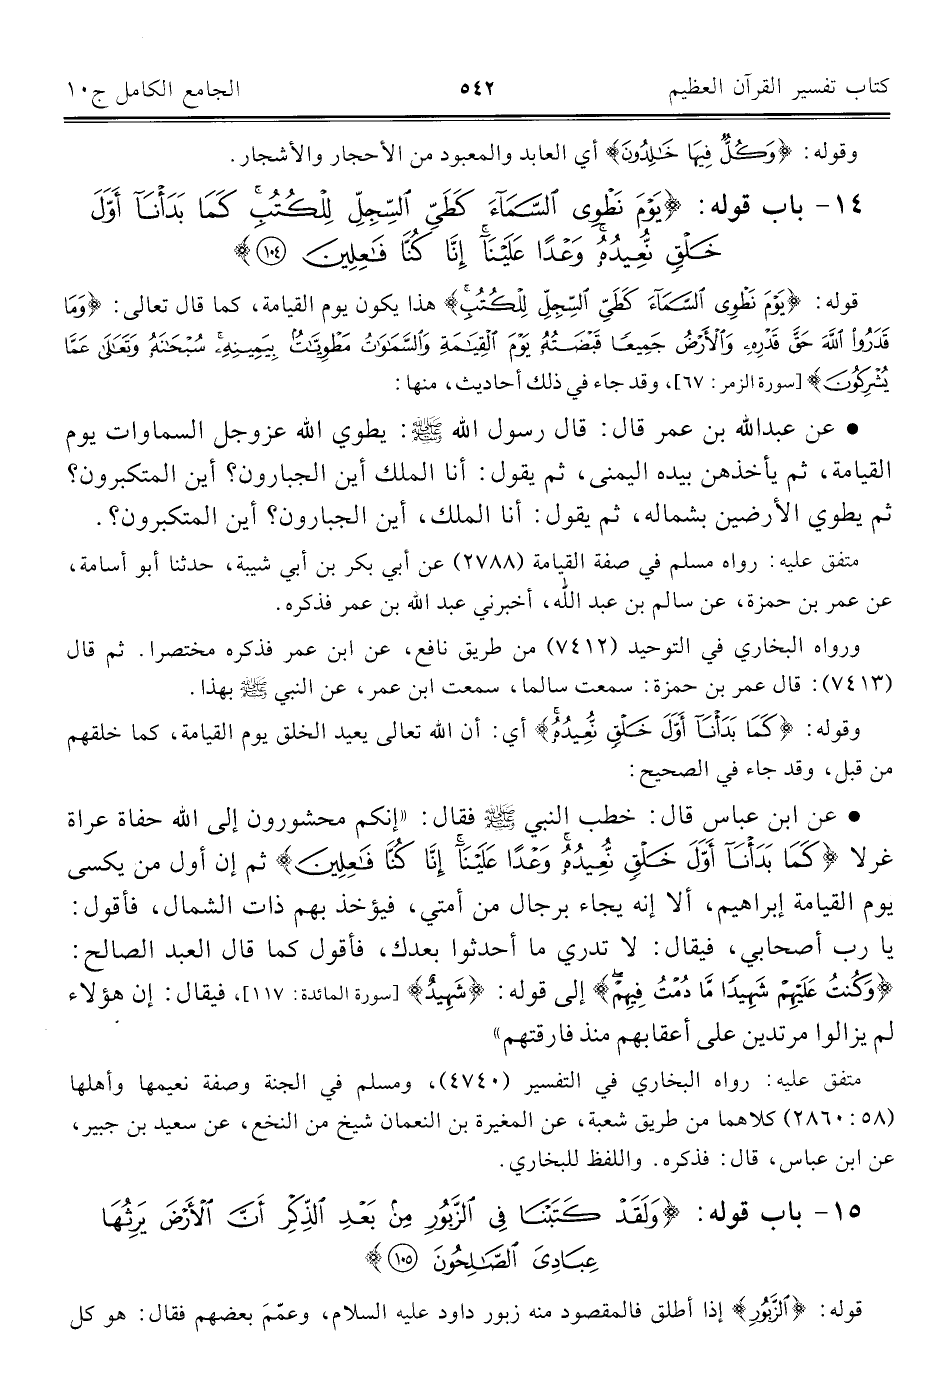 كتاب تفسير القرآن العظيم ٥٤٢ الجامع الكامل ج١٠
وقوله: ﴿وَكُلٌّ فِيهَا خَٰلِدُونَ﴾ أي العابد والمعبود من الأحجار والأشجار.
١٤- باب قوله: ﴿يَوْمَ نَطْوِى ٱلسَّمَآءَ كَطَىِّ ٱلسِّجِلِّ لِلْكُتُبِ ۚ كَمَا بَدَأْنَآ أَوَّلَ
خَلْقٍ نُّعِيدُهُۥ ۚ وَعْدًا عَلَيْنَآ ۚ إِنَّا كُنَّا فَٰعِلِينَ ١٠٤﴾
قوله: ﴿يَوْمَ نَطْوِى ٱلسَّمَآءَ كَطَىِّ ٱلسِّجِلِّ لِلْكُتُبِ ۚ﴾ هذا يكون يوم القيامة، كما قال تعالى: ﴿وَمَا
قَدَرُوا۟ ٱللَّهَ حَقَّ قَدْرِهِۦ وَٱلْأَرْضُ جَمِيعًا قَبْضَتُهُۥ يَوْمَ ٱلْقِيَٰمَةِ وَٱلسَّمَٰوَٰتُ مَطْوِيَّٰتٌۢ بِيَمِينِهِۦ ۚ سُبْحَٰنَهُۥ وَتَعَٰلَىٰ عَمَّا
يُشْرِكُونَ﴾ [سورة الزمر: ٦٧]، وقد جاء في ذلك أحاديث، منها:
• عن عبدالله بن عمر قال: قال رسول الله ﷺ: يطوي الله عزوجل السماوات يوم
القيامة، ثم يأخذهن بيده اليمنى، ثم يقول: أنا الملك أين الجبارون؟ أين المتكبرون؟
ثم يطوي الأرضين بشماله، ثم يقول: أنا الملك، أين الجبارون؟ أين المتكبرون؟.
متفق عليه: رواه مسلم في صفة القيامة (٢٧٨٨) عن أبي بكر بن أبي شيبة، حدثنا أبو أسامة،
عن عمر بن حمزة، عن سالم بن عبد الله، أخبرني عبد الله بن عمر فذكره.
ورواه البخاري في التوحيد (٧٤١٢) من طريق نافع، عن ابن عمر فذكره مختصرا. ثم قال
(٧٤١٣): قال عمر بن حمزة: سمعت سالما، سمعت ابن عمر، عن النبي ﷺ بهذا.
وقوله: ﴿كَمَا بَدَأْنَآ أَوَّلَ خَلْقٍ نُّعِيدُهُۥ ۚ﴾ أي: أن الله تعالى يعيد الخلق يوم القيامة، كما خلقهم
من قبل، وقد جاء في الصحيح:
• عن ابن عباس قال: خطب النبي ﷺ فقال: «إنكم محشورون إلى الله حفاة عراة
غرلا ﴿كَمَا بَدَأْنَآ أَوَّلَ خَلْقٍ نُّعِيدُهُۥ ۚ وَعْدًا عَلَيْنَآ ۚ إِنَّا كُنَّا فَٰعِلِينَ﴾ ثم إن أول من يكسى
يوم القيامة إبراهيم، ألا إنه يجاء برجال من أمتي، فيؤخذ بهم ذات الشمال، فأقول:
يا رب أصحابي، فيقال: لا تدري ما أحدثوا بعدك، فأقول كما قال العبد الصالح:
﴿وَكُنتُ عَلَيْهِمْ شَهِيدًا مَّا دُمْتُ فِيهِمْ ۖ﴾ إلى قوله: ﴿شَهِيدٌ﴾ [سورة المائدة: ١١٧]، فيقال: إن هؤلاء
لم يزالوا مرتدين على أعقابهم منذ فارقتهم»
متفق عليه: رواه البخاري في التفسير (٤٧٤٠)، ومسلم في الجنة وصفة نعيمها وأهلها
(٢٨٦٠:٥٨) كلاهما من طريق شعبة، عن المغيرة بن النعمان شيخ من النخع، عن سعيد بن جبير،
عن ابن عباس، قال: فذكره. واللفظ للبخاري.
١٥- باب قوله: ﴿وَلَقَدْ كَتَبْنَا فِى ٱلزَّبُورِ مِنۢ بَعْدِ ٱلذِّكْرِ أَنَّ ٱلْأَرْضَ يَرِثُهَا
عِبَادِىَ ٱلصَّٰلِحُونَ ١٠٥﴾
قوله: ﴿ٱلزَّبُورِ﴾ إذا أطلق فالمقصود منه زبور داود عليه السلام، وعمّمَ بعضهم فقال: هو كل